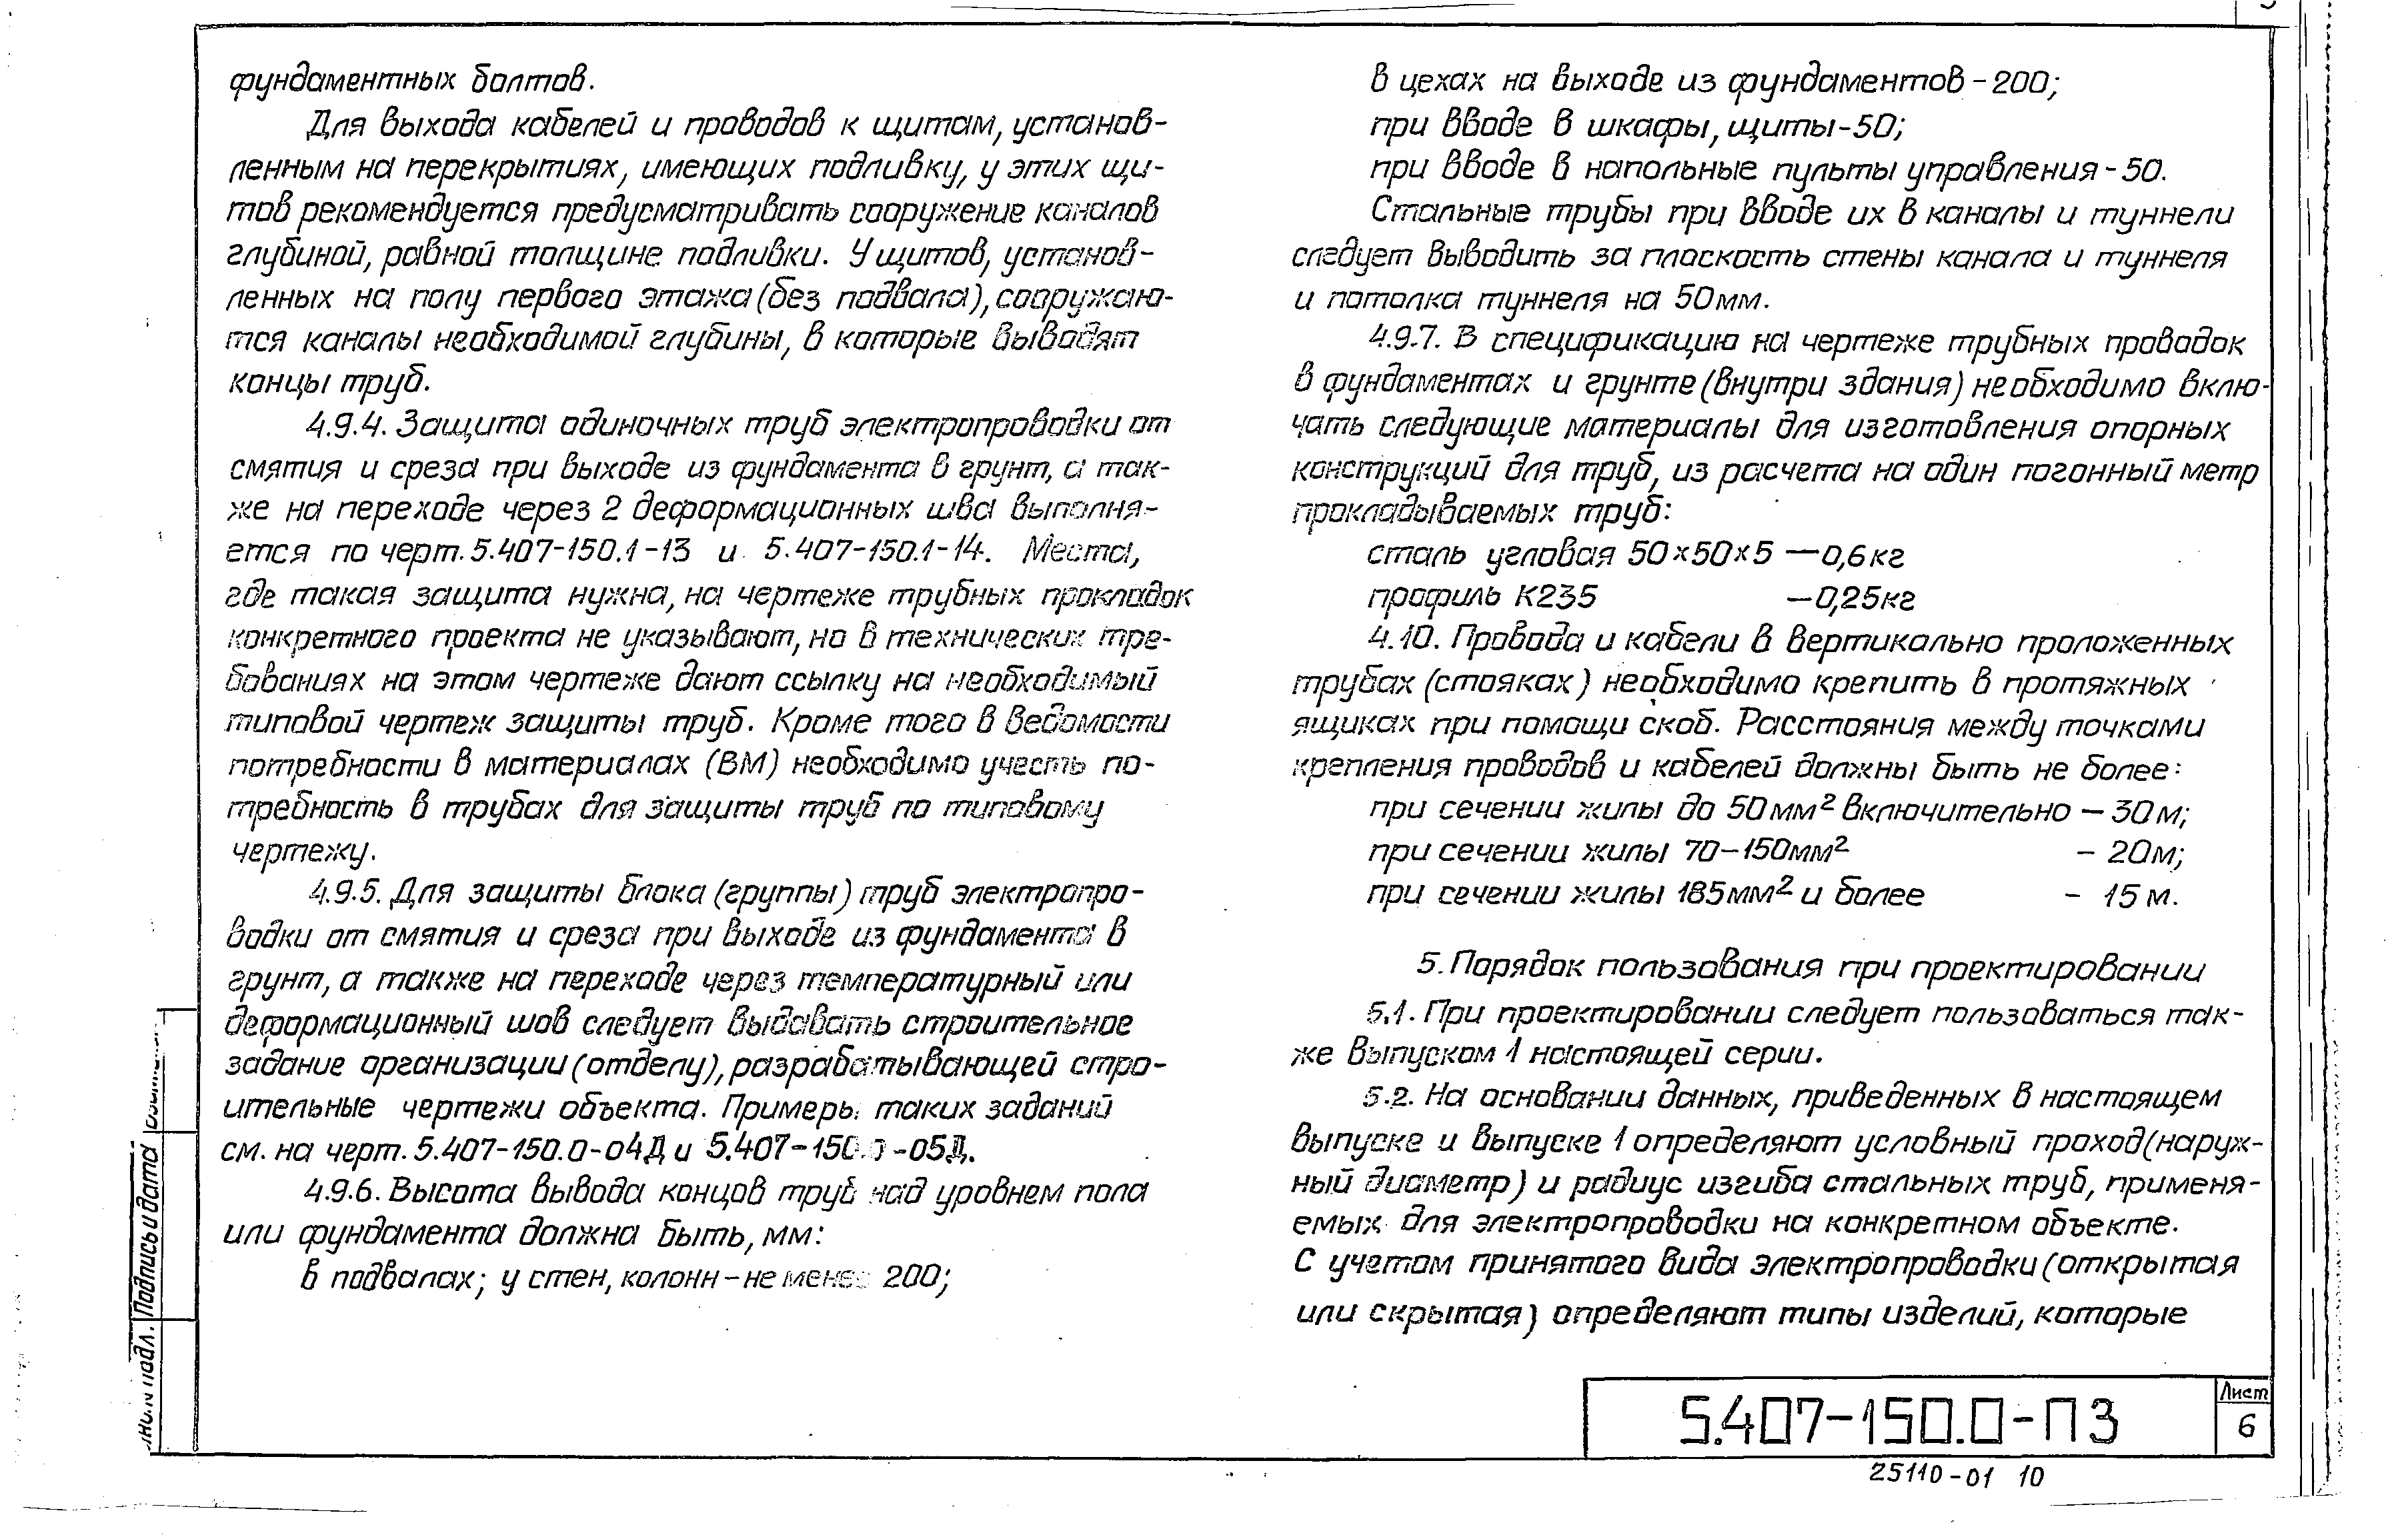 фундаментных болтов.
Для выхода кабелей и проводов к щитам, установ-
ленным на перекрытиях, имеющих подливку, у этих щи-
тов рекомендуется предусматривать сооружение каналов
глубиной, равной толщине подливки. У щитов, установ-
ленных на полу первого этажа (без подвала), сооружаю-
тся каналы необходимой глубины, в которые выводят
концы труб.
4.9.4. Защита одиночных труб электропроводки от
смятия и среза при выходе из фундамента в грунт, а так-
же на переходе через 2 деформационных шва выполня-
ется по черт. 5.407-150.1-13 и 5.407-150.1-14. Места,
где такая защита нужна, на чертеже трубных прокладок
конкретного проекта не указывают, но в технических тре-
бованиях на этом чертеже дают ссылку на необходимый
типовой чертеж защиты труб. Кроме того в ведомости
потребности в материалах (ВМ) необходимо учесть по-
требность в трубах для защиты труб по типовому
чертежу.
4.9.5. Для защиты блока (группы) труб электропро-
водки от смятия и среза при выходе из фундамента в
грунт, а также на переходе через температурный или
деформационный шов следует выдавать строительное
задание организации (отделу), разрабатывающей стро-
ительные чертежи объекта. Примеры таких заданий
см. на черт. 5.407-150.0-04Д и 5.407-150.0-05Д.
4.9.6. Высота вывода концов труб над уровнем пола
или фундамента должна быть, мм:
в подвалах; у стен, колонн - не менее 200;
в цехах на выходе из фундаментов - 200;
при вводе в шкафы, щиты - 50;
при вводе в напольные пульты управления - 50.
Стальные трубы при вводе их в каналы и туннели
следует выводить за плоскость стены канала и туннеля
и потолка туннеля на 50мм.
4.9.7. В спецификацию на чертеже трубных проводок
в фундаментах и грунте (внутри здания) необходимо вклю-
чать следующие материалы для изготовления опорных
конструкций для труб, из расчета на один погонный метр
прокладываемых труб:
сталь угловая 50х50х5 — 0,6 кг
профиль К235 — 0,25кг
4.10. Провода и кабели в вертикально проложенных
трубах (стояках) необходимо крепить в протяжных
ящиках при помощи скоб. Расстояния между точками
крепления проводов и кабелей должны быть не более:
при сечении жилы до 50 мм² включительно — 30 м;
при сечении жилы 70-150мм² - 20м;
при сечении жилы 185мм² и более - 15 м.
5. Порядок пользования при проектировании
5.1. При проектировании следует пользоваться так-
же выпуском 1 настоящей серии.
5.2. На основании данных, приведенных в настоящем
выпуске и выпуске 1 определяют условный проход (наруж-
ный диаметр) и радиус изгиба стальных труб, применя-
емых для электропроводки на конкретном объекте.
С учетом принятого вида электропроводки (открытая
или скрытая) определяют типы изделий, которые
Подпись и дата
подл.
5.407-150.0-ПЗ
Лист
6
25110-01 10